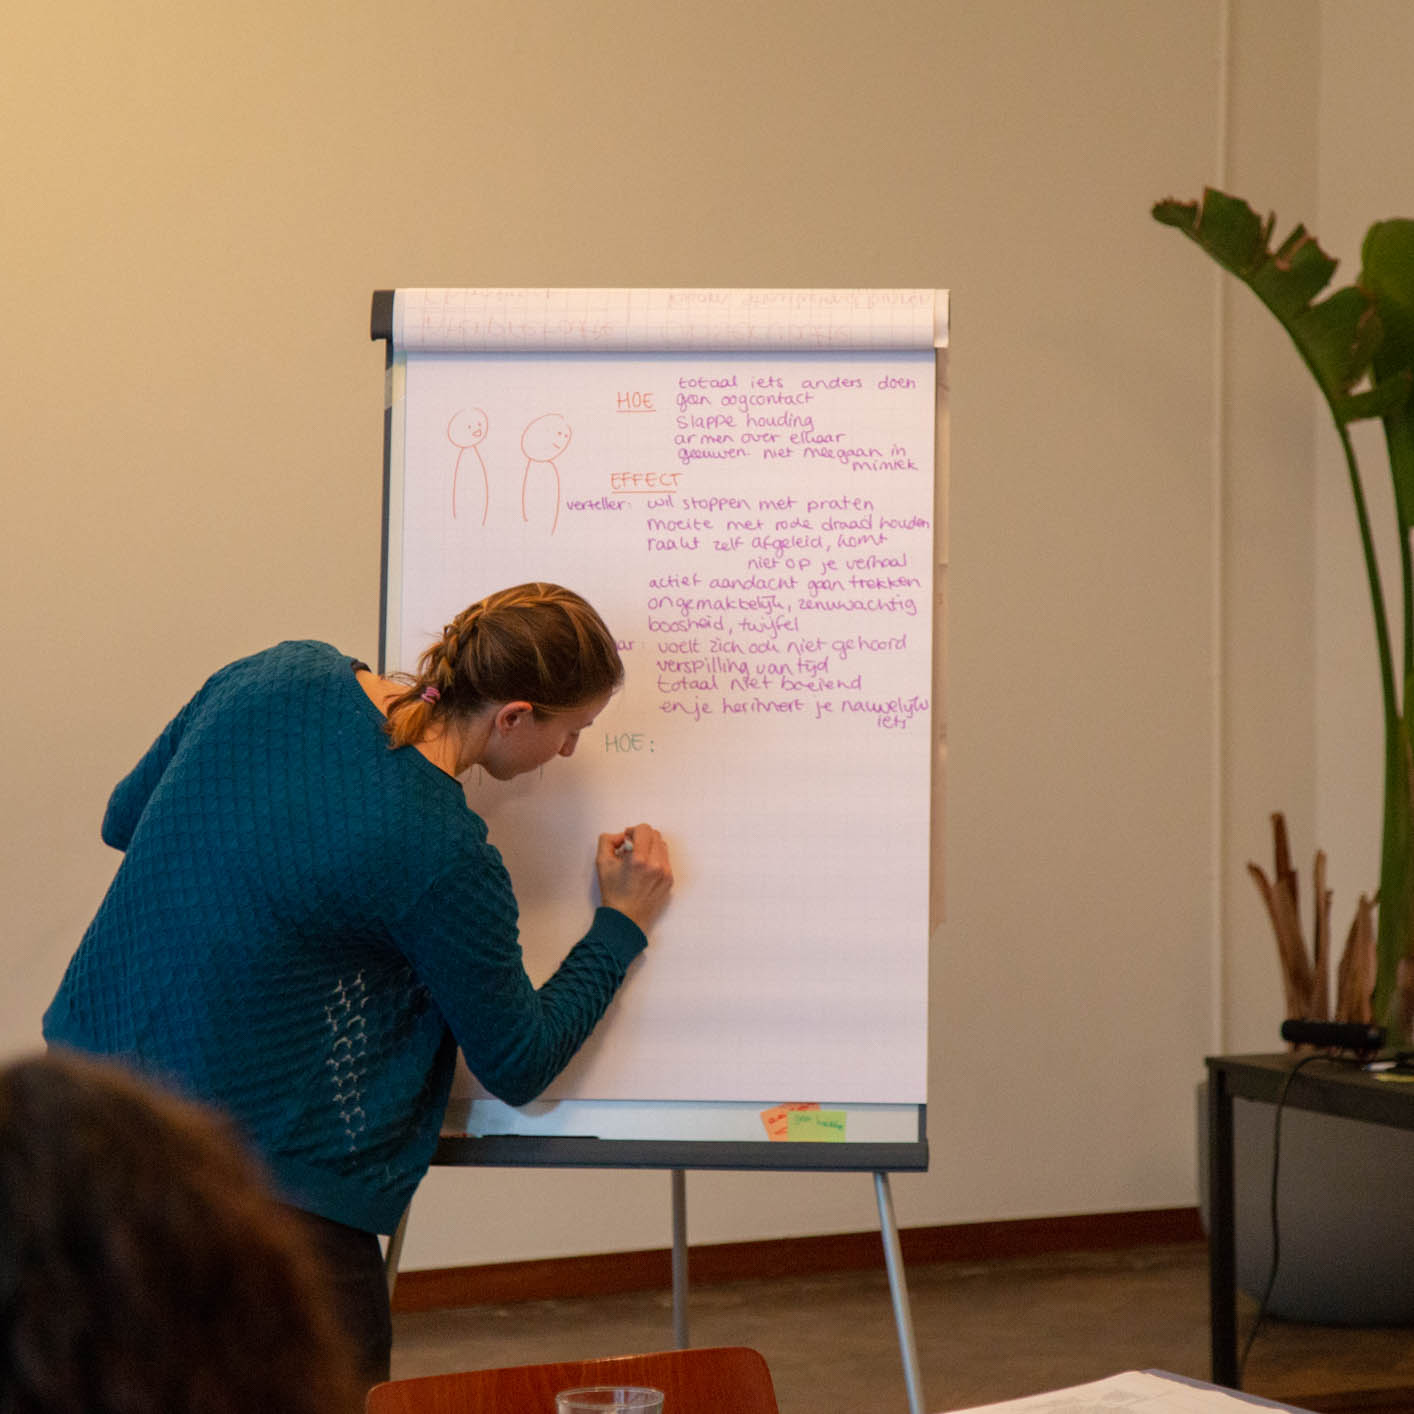 totaal iets anders doen
HOE geen oogcontact
slappe houding
armen over elkaar
geeuwen. niet meegaan in
mimiek
EFFECT
verteller: wil stoppen met praten
moeite met rode draad houden
raakt zelf afgeleid, komt
niet op je verhaal
actief aandacht gaan trekken
ongemakkelijk, zenuwachtig
boosheid, twijfel
ar: voelt zich ook niet gehoord
verspilling van tijd
totaal niet boeiend
en je herinnert je nauwelijks
iets
HOE: